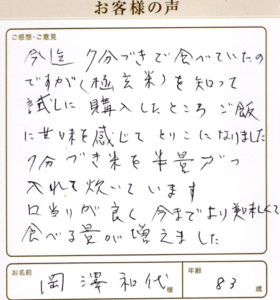 お客様の声
ご感想・ご意見
今迄 7分づきで食べていたの
ですが(極玄米)を知って
試しに購入したところ ご飯
に甘味を感じて とりこになりました
7分づき米を半量づつ
入れて炊いています
口当りが良く、今までより美味しくて
食べる量が増えました
お名前 岡澤和代 様 年齢 83 歳